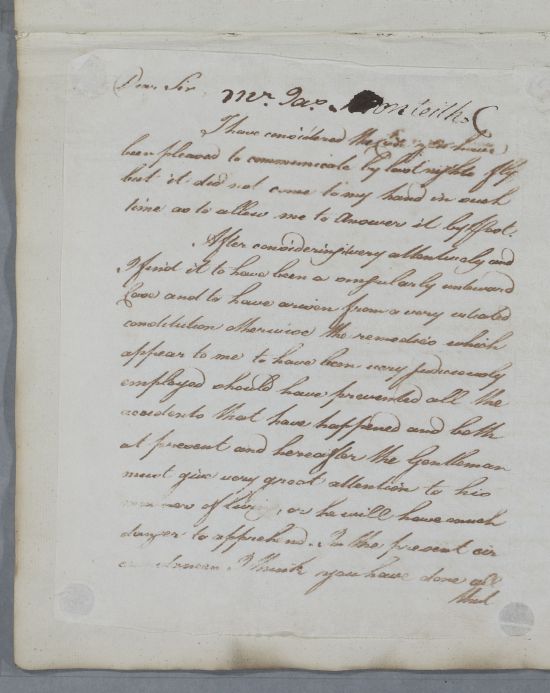 Dear Sir
Mr. Jas. Monteith C
I have considered the Case you have
been pleased to communicate by last nights fly
but it did not come to my hand in such
time as to allow me to answer it by post.
After considering very attentively and
I find it to have been a singularly untoward
Case and to have arisen from a very vitiated
constitution otherwise the remedies which
appear to me to have been very judiciously
employed should have prevented all the
accidents that have happened and both
at present and hereafter the Gentleman
must give very great attention to his
manner of living or he will have much
danger to apprehend. In the present cir
cumstances I think you have done all
that